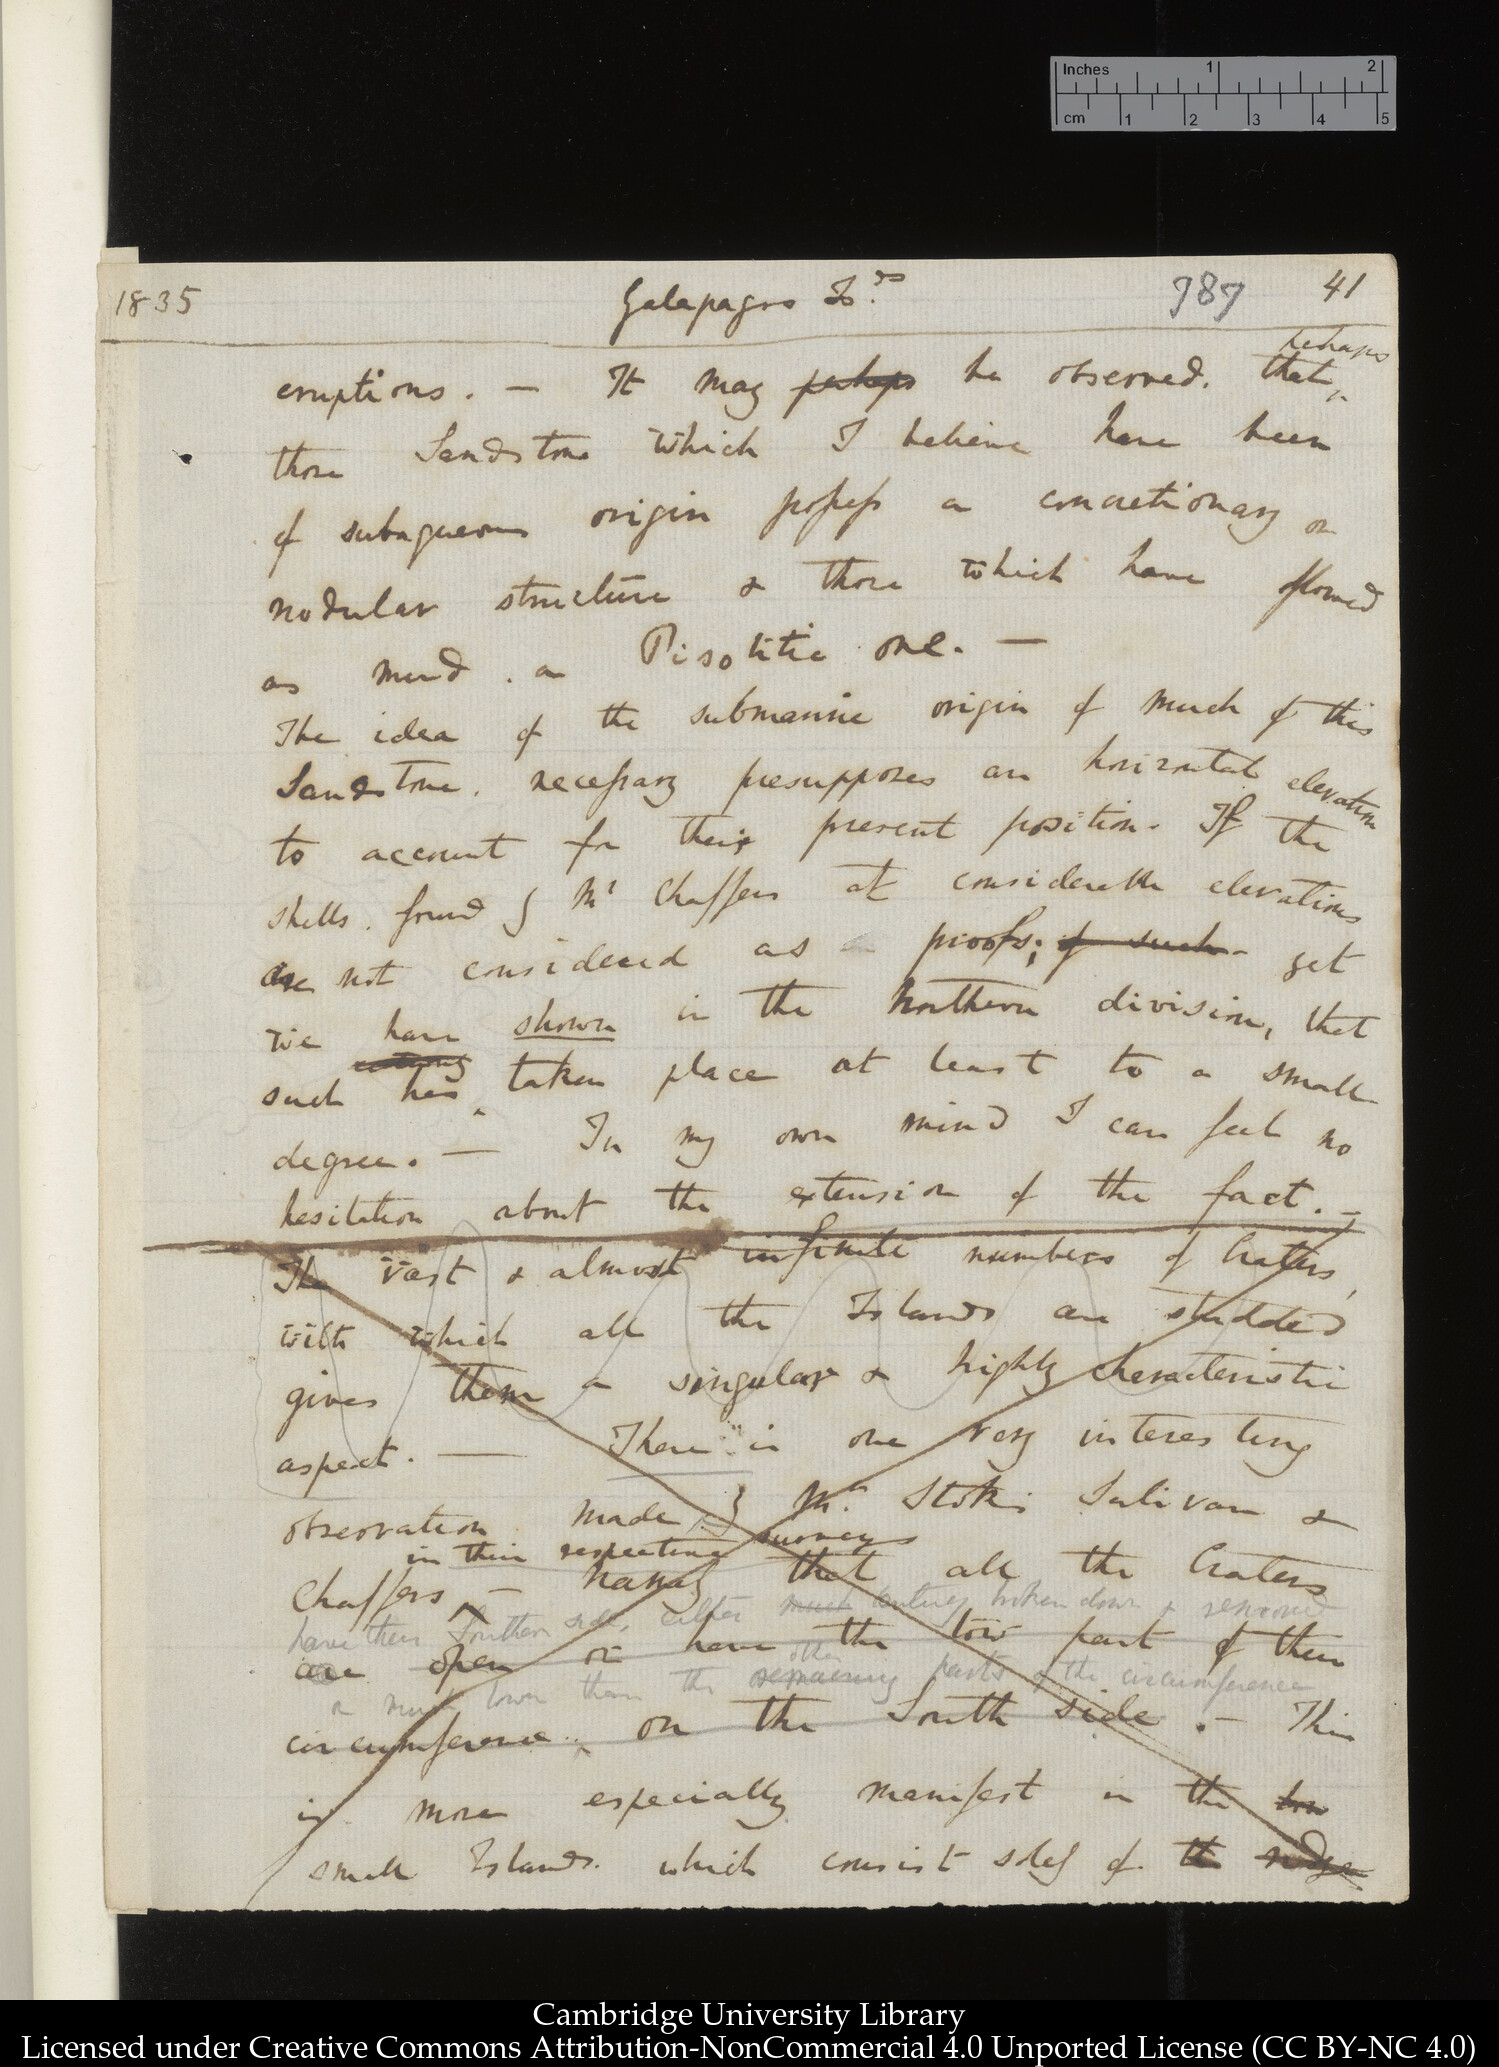 Inches 1 2
cm 1 2 3 4 5
1835 Galapagos Is.ds 787 41
perhaps
eruptions. — It may perhaps be observed, that
those Sandstone which I believe have been
of subaqueous origin possess a concretionary or
nodular structure & those which have flowed
as mud. a Pisolitic one. —
The idea of the submarine origin of much of this
Sandstone, necessary presupposes an horizontal elevation
to account for their present position. If the
shells, found by Mr Chaffers at considerable elevations
are not considered as proofs; of such yet
we have shown in the Northern division, that
certainly
such has taken place at least to a small
degree. — In my own mind I can feel no
hesitation about the extension of the fact. —
The vast & almost infinite numbers of Craters,
with which all the Islands are studded
gives them a singular & highly characteristic
aspect. — There is one very interesting
observation made by Mr. Stokes Sulivan &
in their respective surveys
Chaffers — namely that all the Craters
have their Southern side, either much entirely broken down & removed
are open or have the low part of their
other
or much lower than the remaining parts of the circumference
circumference on the South side. — This
is more especially manifest in the low
small Islands. which consist solely of the
Cambridge University Library
Licensed under Creative Commons Attribution-NonCommercial 4.0 Unported License (CC BY-NC 4.0)